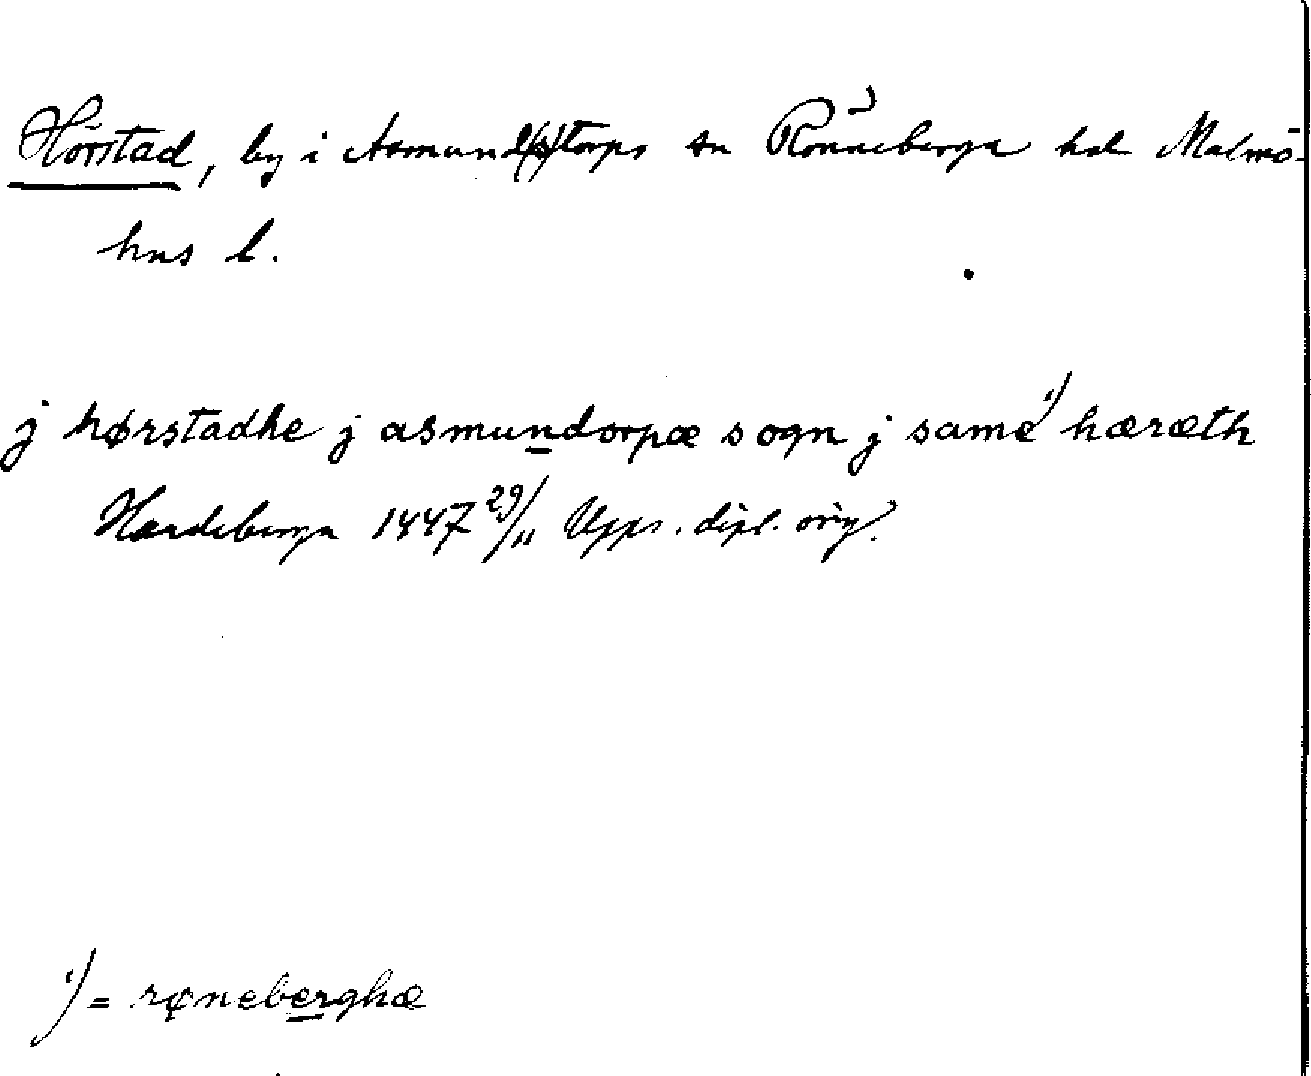 Hörstad, by i Asmund(s)torps sn Rönneberga hd Malmö-
hus l.
j hørstadhe j asmundorpæ sogn j same 1) hæræth
Hardeberga 1447 29/11 Upps. dipl. orig.
1) = røneberghæ